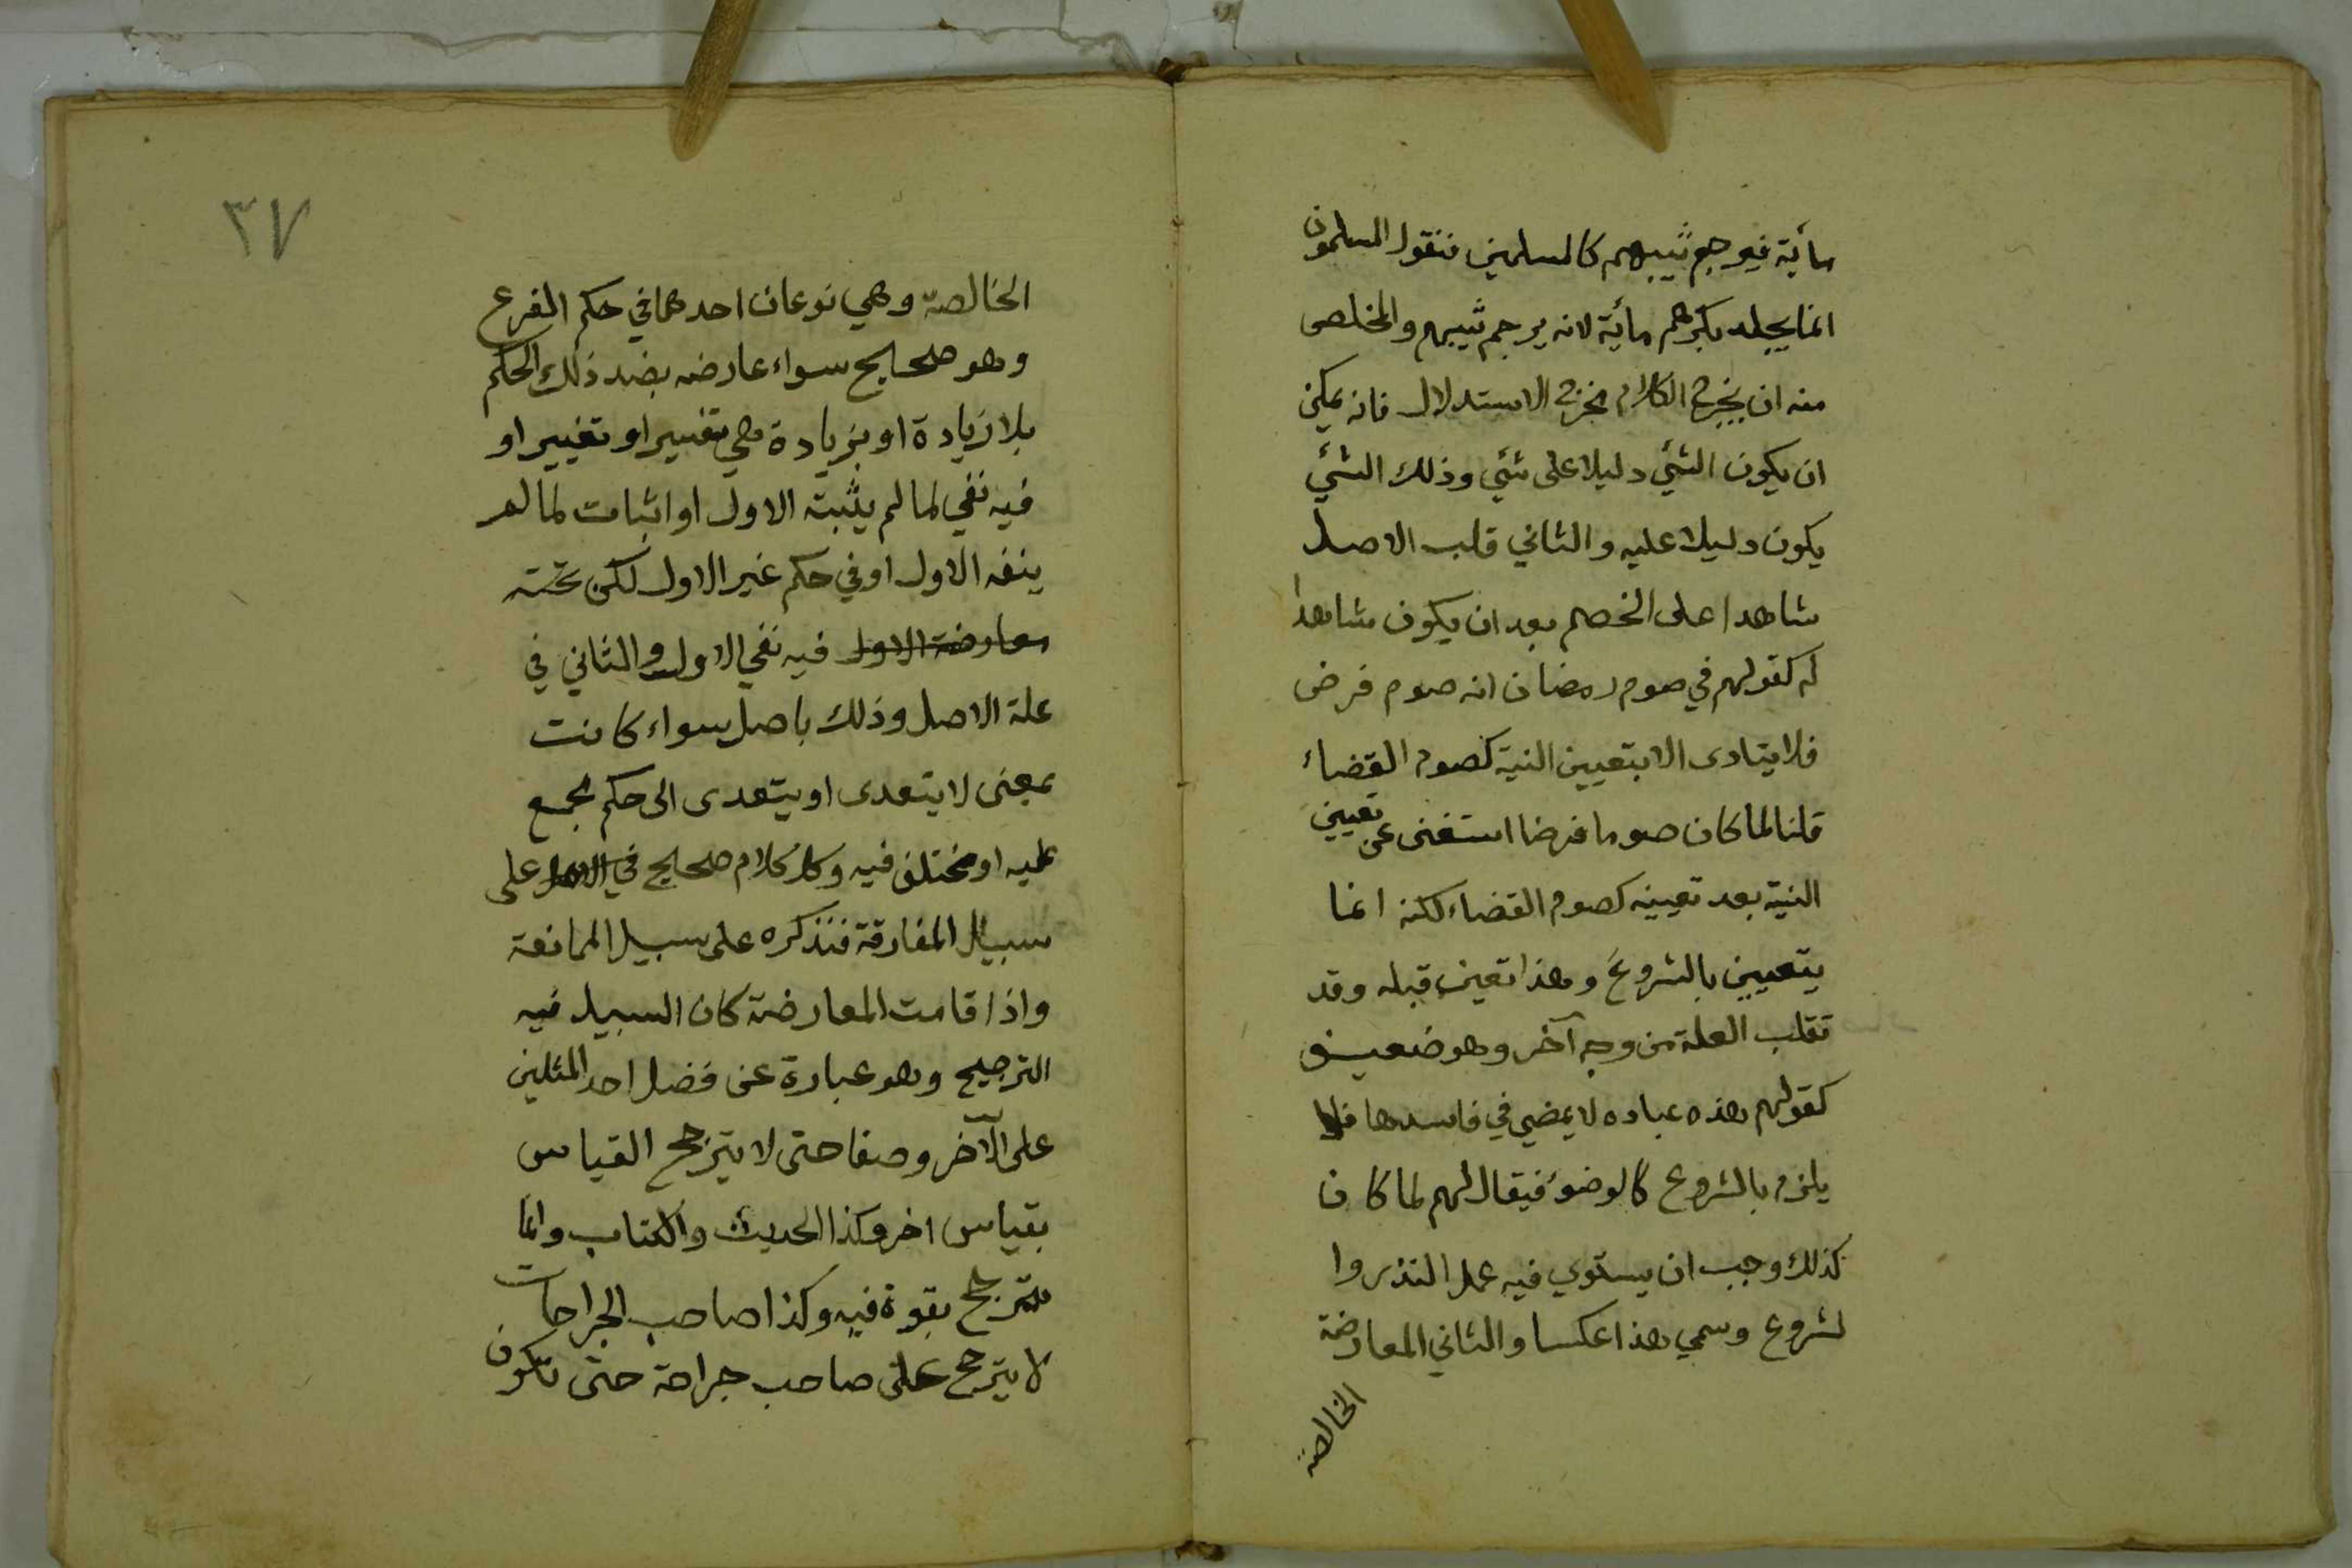 مأية فيرجم ثيبهم كالمسلمين فنقول المسلمون
انما يجلد بكرهم مأية لانه يرجم ثيبهم والمخلص
منه ان يخرج الكلام مخرج الاستدلال فانه يمكن
ان يكون الشئ دليلا على شئ وذلك الشئ
يكون دليلا عليه والثاني قلب الاصل
شاهدا على الخصم بعد ان يكون شاهدا
له كقولهم في صوم رمضان انه صوم فرض
فلا يتادى الا بتعيين النية كصوم القضاء
قلنا لما كان صوما فرضا استغنى عن تعيين
النية بعد تعيينه كصوم القضاء لكنه انما
يتعيين بالشروع وهذا تعين قبله وقد
تقلب العلة من وجه آخر وهو ضعيف
كقولهم هذه عباده لا يمضي في فاسدها فلا
يلزم بالشروع كالوضوء فيقال لهم لما كان
كذلك وجب ان يستوي فيه عمل النذر وا
لشروع وسمي هذا عكسا والثاني المعارضة
الخالصة
٣٧
الخالصة وهي نوعان احدهما في حكم الفرع
وهو صحيح سواء عارضه بضد ذلك الحكم
بلا زيادة او بزيادة هي تفسير او تغيير او
فيه نفي لما لم يثبته الاول او اثبات لما لم
ينفه الاول او في حكم غير الاول لكن تحته
معارضة الاول فيه نفي الاول والثاني في
علة الاصل وذلك باصل سواء كانت
بمعنى لا يتعدى او يتعدى الى حكم مجمع
عليه او مختلف فيه وكل كلام صحيح في الاصل على
سبيل المفارقة فنذكره على سبيل الممانعة
واذا قامت المعارضة كان السبيل فيه
الترجيح وهو عبارة عن فضل احد المثلين
على الآخر وصفا حتى لا يترجح القياس
بقياس اخر وكذا الحديث والكتاب وانما
يترجح بقوة فيه وكذا صاحب الجراحات
لا يترجح على صاحب جراحة حتى تكون